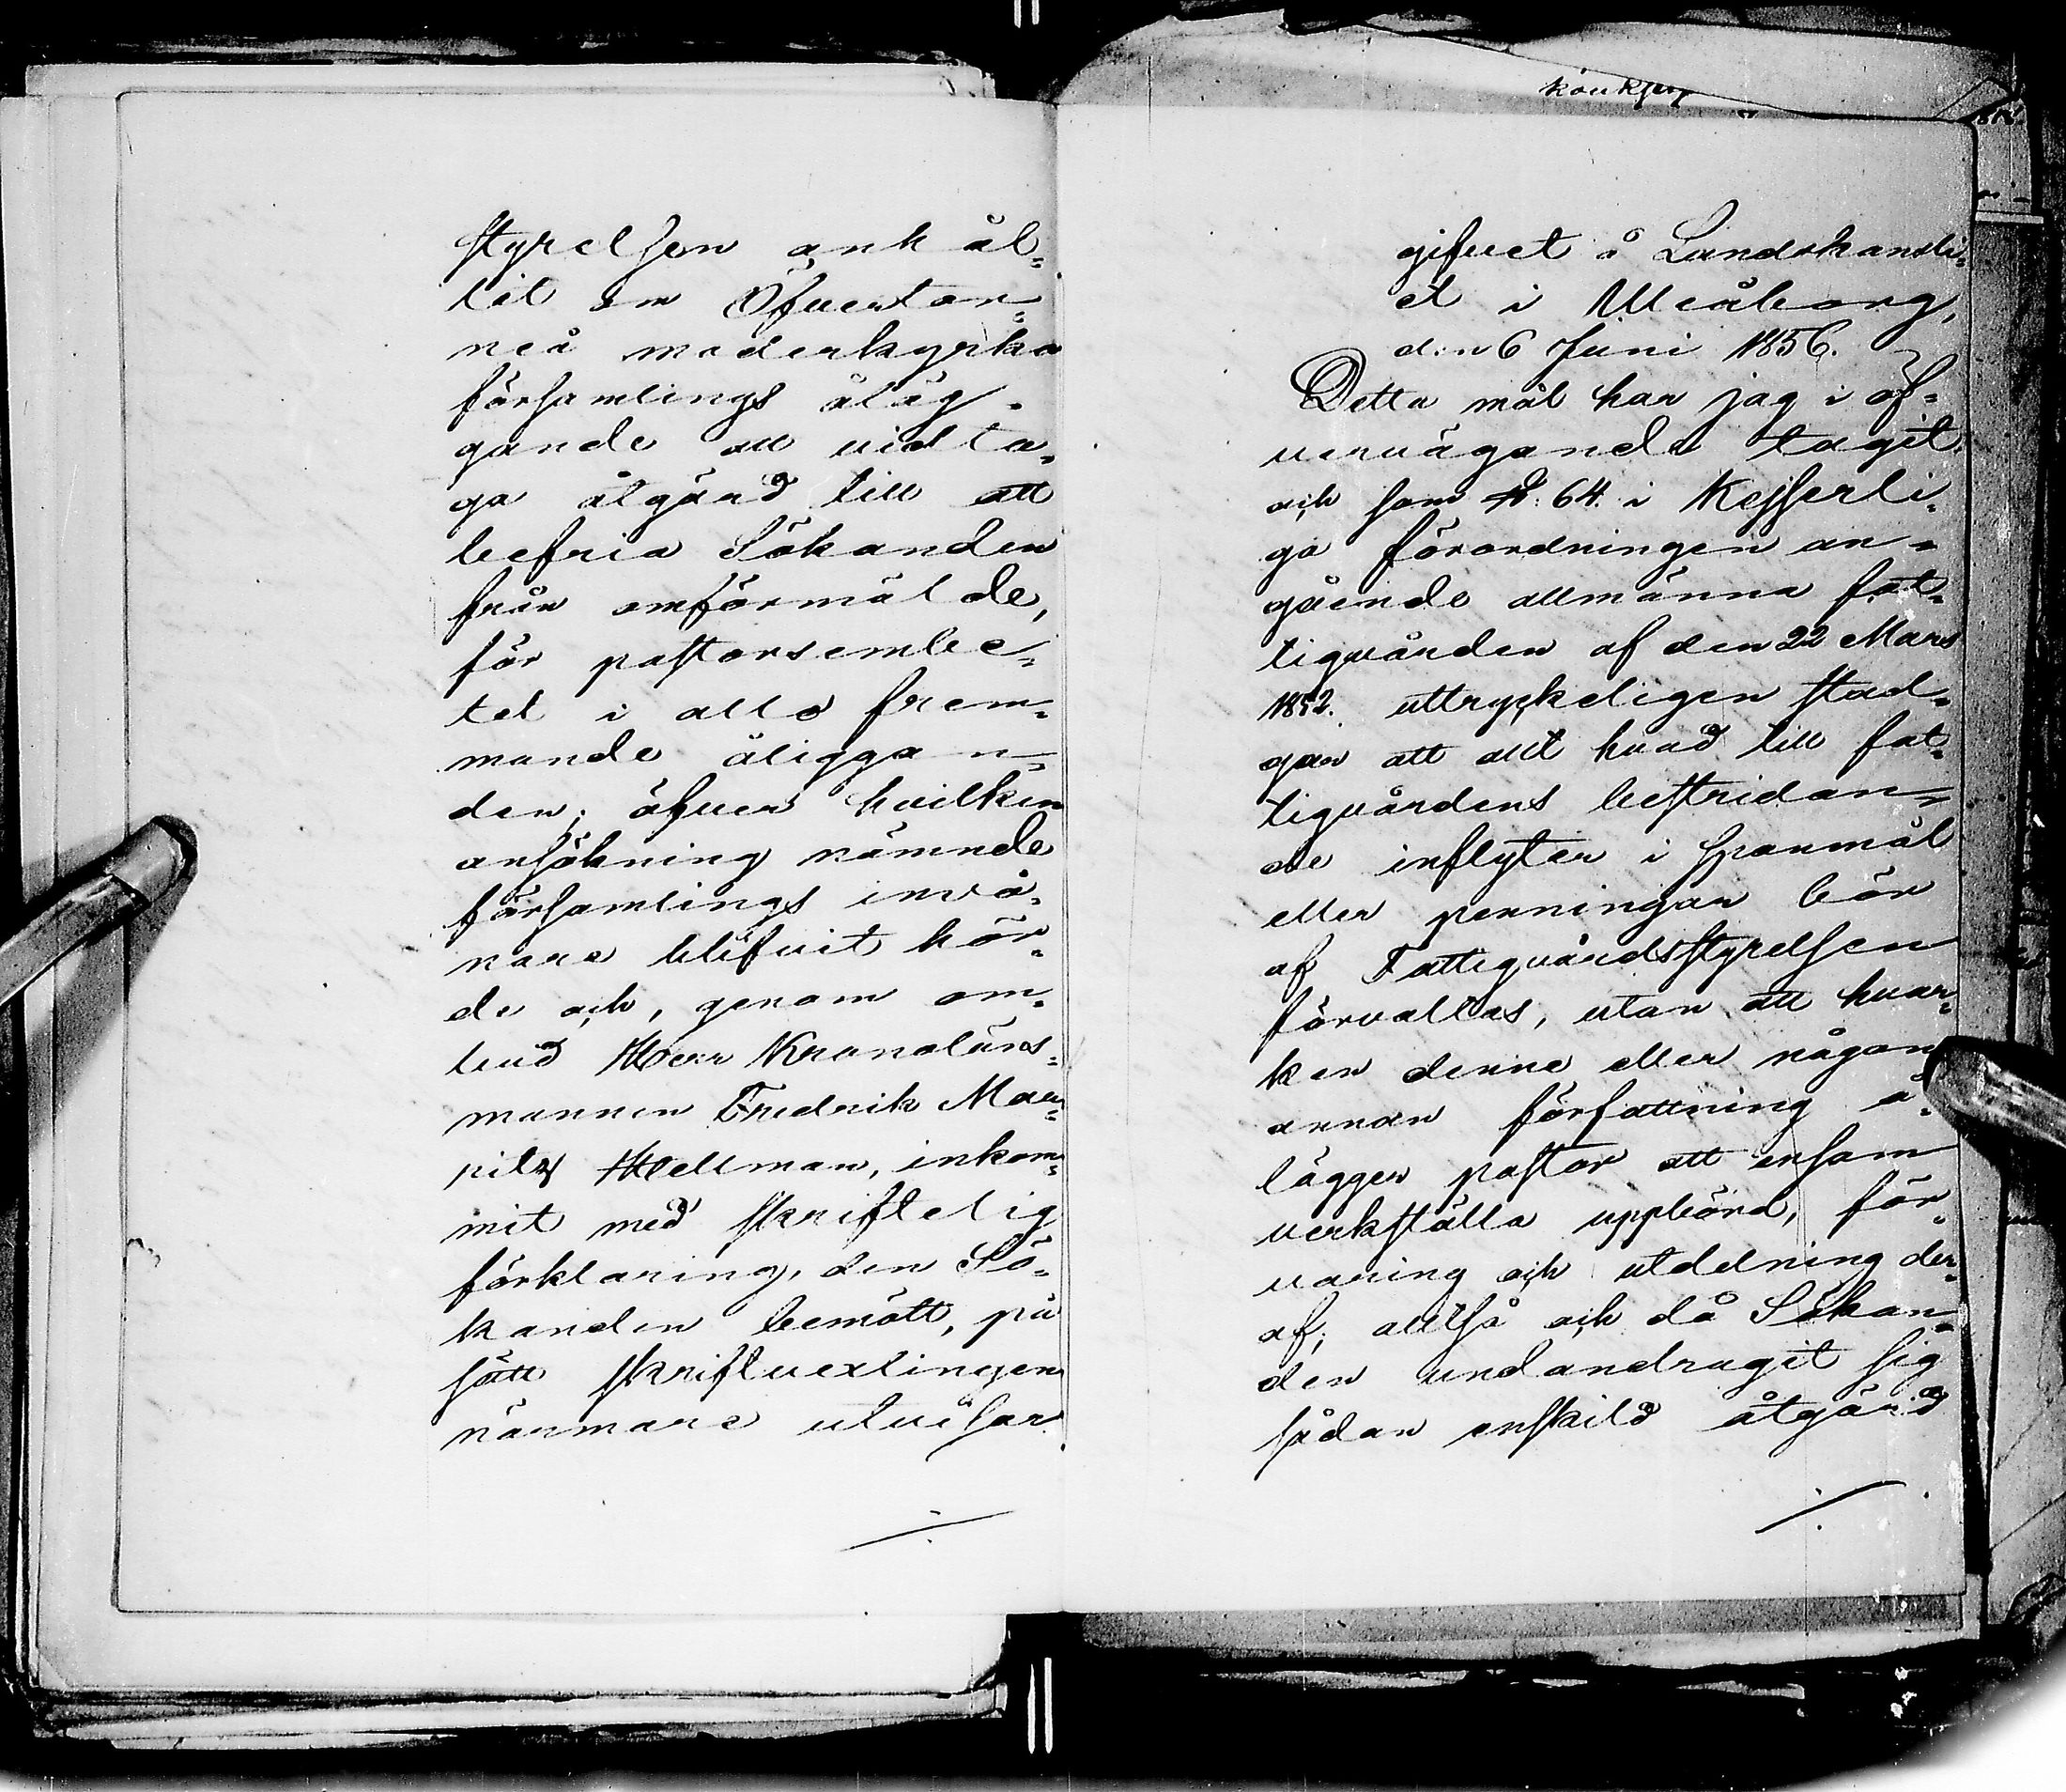 styrelsen anhål=
lit om Öfvertor=
neå moderkyrko
församlings åläg=
gande att vidta=
ga åtgärd till att
befria Sökanden
från omförmälde,
för pastorsembe=
tet i allo frem=
mande åliggan=
den; öfver hvilken
ansökning nämnde
församlings invå=
nare blifvit hör=
de och, genom om=
bud Herr Kronoläns=
mannen Fredrik Mau=
ritz Hellman, inkom=
mit med skriftelig
förklaring, den Sö=
kanden bemött, på
sätt skriftvexlingen
närmare utvisar.
gifvet å Landskansli=
et i Uleåborg,
den 6 Juni 1856.
Detta mål har jag i öf=
vervägande tagit
och som §. 64. i Kejserli=
ga förordningen an=
gående allmänna fat=
tigvården af den 22 Mars
1852. uttryckeligen stad=
gar att allt hvad till fat=
tigvårdens bestridan=
de inflyter i spanmål
eller penningar bör
af Fattigvårdsstyrelsen
förvaltas, utan att hvar=
ken denne eller någon
annan författning å=
lägger pastor att ensam
verkställa uppbörd, för=
varing och utdelning der=
af; alltså och då Sökan=
den undandragit sig
sådan enskild åtgärd